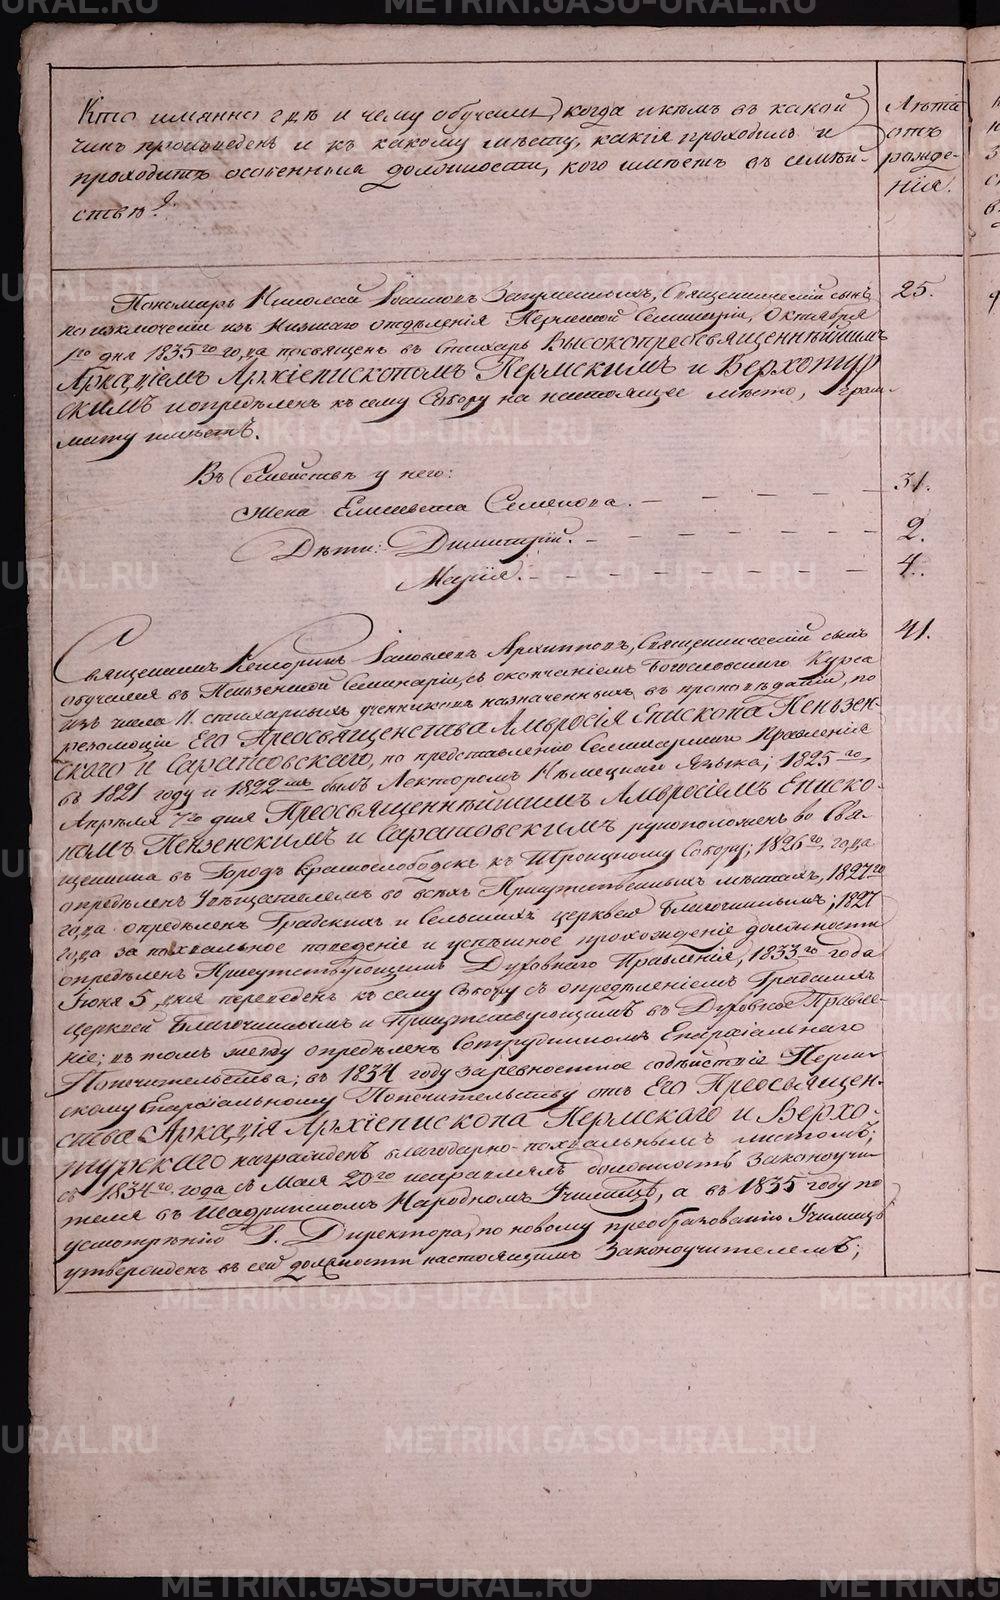 METRIKI.GASO-URAL.RU
Кто имянно гдѣ и чему обучался, когда и кѣмъ въ какой
чинъ произведенъ и къ какому мѣсту, какія проходилъ и
проходитъ особенныя должности, кого имѣетъ въ семѣй-
ствѣ?
Лѣта
отъ
рожде-
нія.
Пономарь Николай Іоанновъ, Священническій сынъ 25.
по изключеніи изъ Низшаго отдѣленія Пермской Семинаріи, Октября
1го дня 1835го года посвященъ въ Стихарь Высокопреосвященнѣйшимъ
Аркадіемъ Архіепископомъ Пермскимъ и Верхотур
скимъ и опредѣленъ къ сему Собору на настоящее мѣсто, грам-
мату имѣетъ.
Въ Семействѣ у него:
Жена Елисавета Семенова. 31.
Дѣти: Димитрій. 2.
Марія. 4.
Священникъ Іаковлевъ Архиповъ, Священническій сынъ 41.
обучался въ Пензенской Семинаріи, съ окончаніемъ Богословскаго Курса
изъ числа 11. стихарныхъ учениковъ назначенныхъ въ проповѣданіи, по
резолюціи Его Преосвященства Амвросія Епископа Пензен-
скаго и Саратовскаго, по представленію Семинарскаго Правленія
въ 1821 году и 1822мъ былъ Лекторомъ Нѣмецкаго Языка; 1825го
Апрѣля 7го дня Преосвященнѣйшимъ Амвросіемъ Еписко-
помъ Пензенскимъ и Саратовскимъ рукоположенъ во Свя-
щенника въ Городъ Краснослободскъ къ Троицкому Собору; 1826го года
опредѣленъ Увѣщателемъ во всѣхъ Присутственныхъ мѣстахъ, 1827го
года опредѣленъ Градскихъ и Сельскихъ церквей Благочиннымъ; 1827
года за похвальное поведеніе и успѣшное прохожденіе должности
опредѣленъ Присутствующимъ Духовнаго Правленія, 1833го года
Іюня 5, дня переведенъ къ сему Собору съ опредѣленіемъ Градскихъ
церквей Благочиннымъ и Присутствующимъ въ Духовное Правле-
ніе; въ томъ между опредѣленъ Сотрудникомъ Епархіальнаго
Попечительства; въ 1834 году за ревностное содѣйствіе Перм-
скому Епархіальному Попечительству отъ Его Преосвящен-
ства Аркадія Архіепископа Пермскаго и Верхо-
турскаго награжденъ благодарно-похвальнымъ листомъ;
съ 1834го года съ Мая 20го исправлялъ должность Законоучи-
теля въ Шадринскомъ Народномъ Училищѣ, а въ 1835 году по
усмотрѣнію Г. Директора, по новому преобразованію Училищъ
утвержденъ въ сей должности настоящимъ Законоучителемъ;